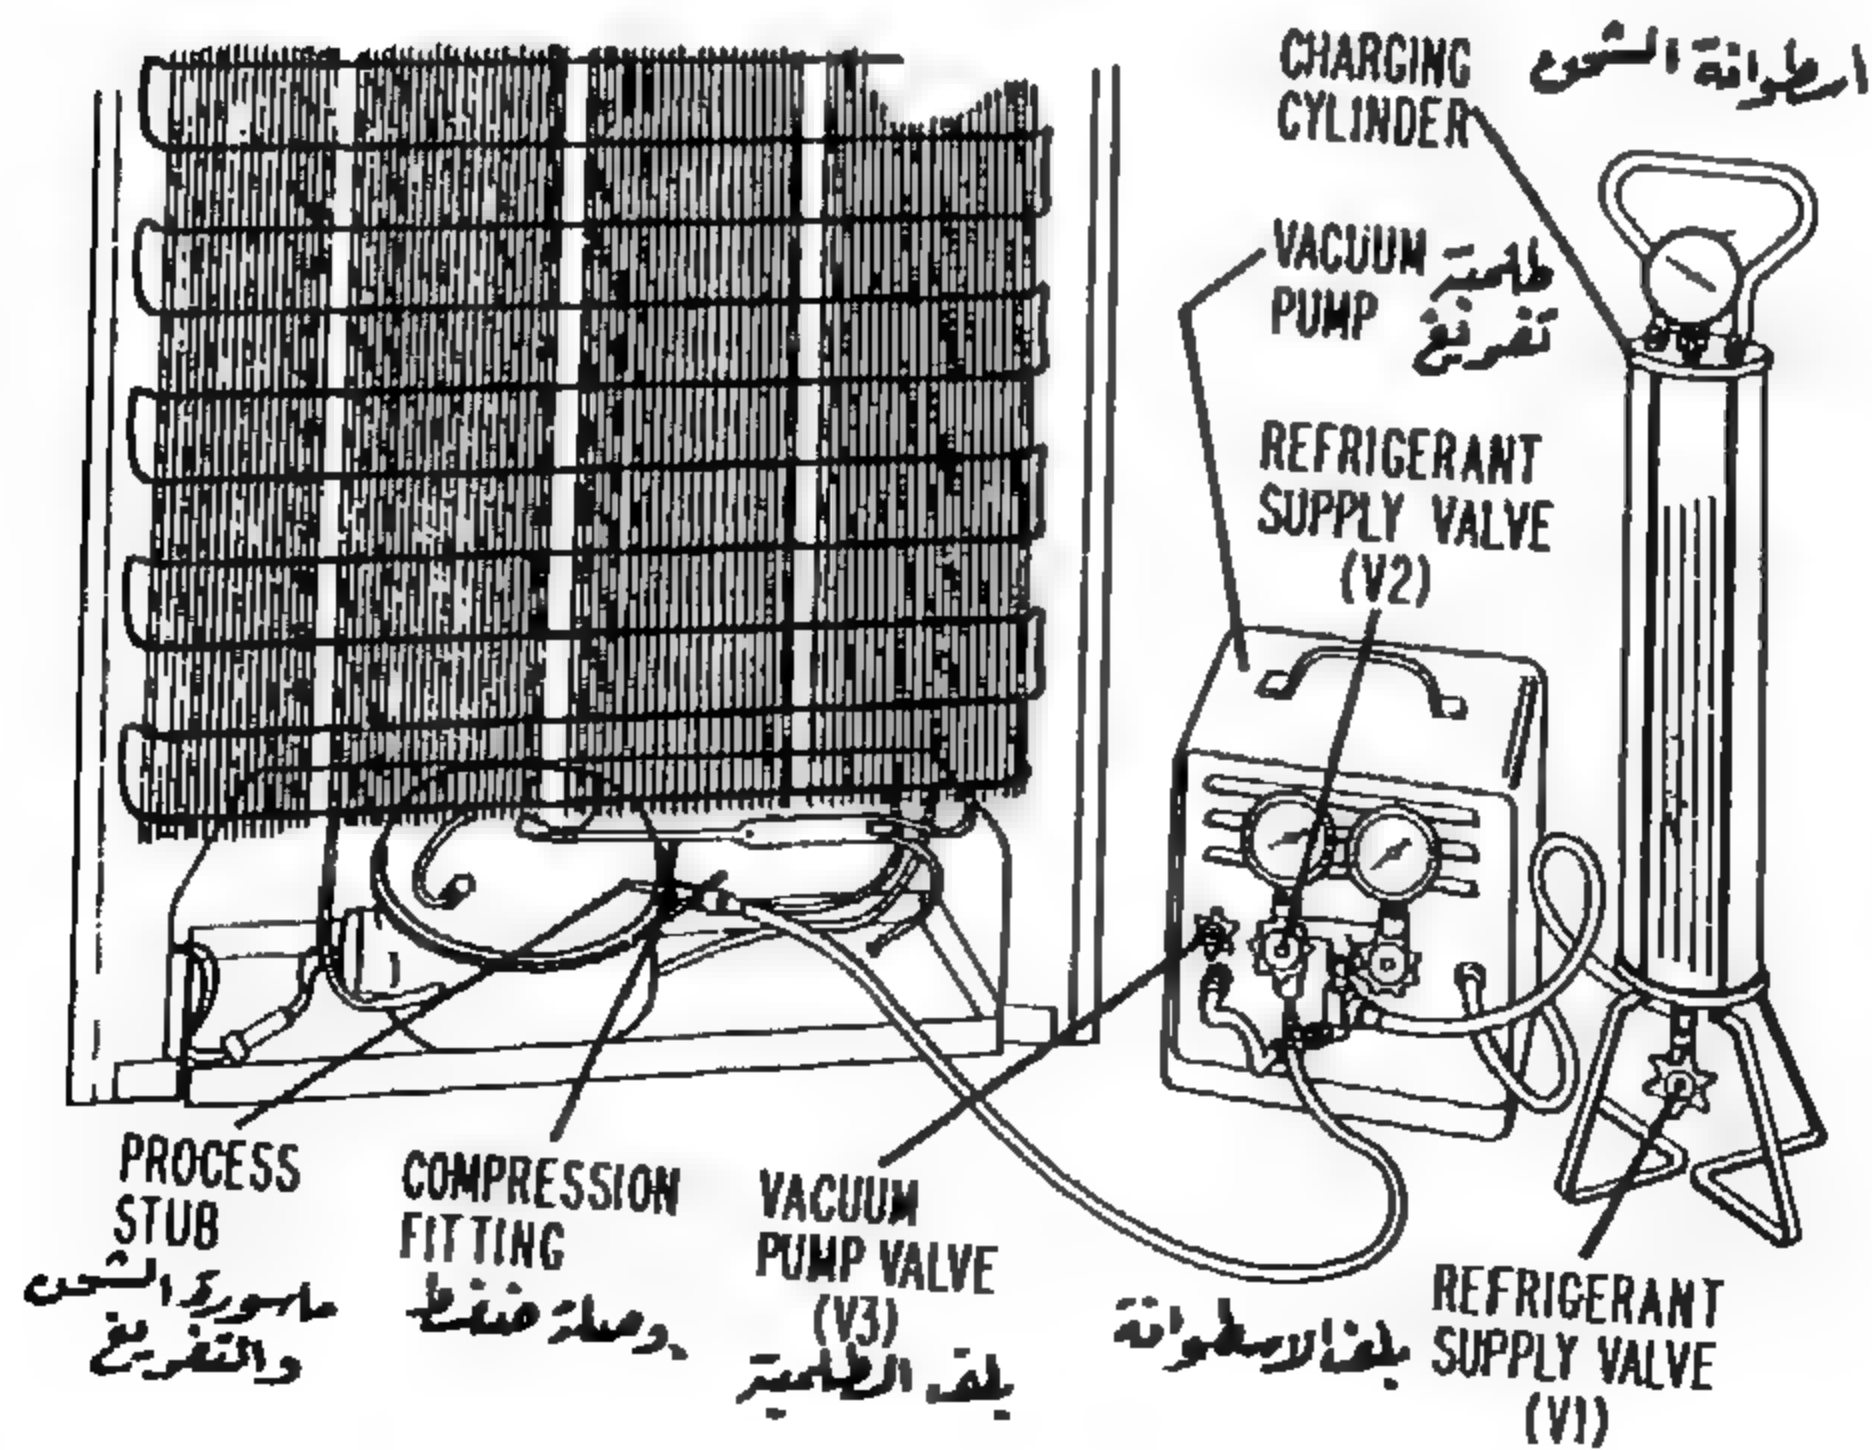 CHARGING
CYLINDER
اسطوانة الشحن
VACUUM
PUMP
طلمبة
تفريغ
REFRIGERANT
SUPPLY VALVE
(V2)
PROCESS
STUB
ماسورة الشحن
والتفريغ
COMPRESSION
FITTING
وصلة ضغط
VACUUM
PUMP VALVE
(V3)
بلف الطلمبة
بلف الاسطوانة
REFRIGERANT
SUPPLY VALVE
(V1)